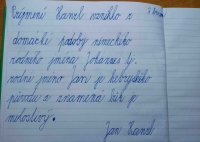 Příjmení Hanzl vzniklo z
domácké podoby německého
rodného jména Johannes tj.
rodné jméno Jan je hebrejského
původu a znamená bůh je
milostivý.
Jan Hanzl